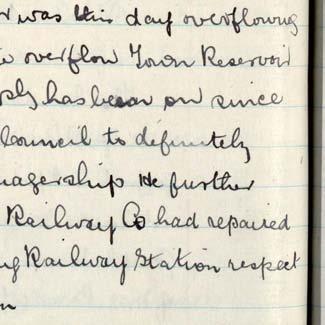 was this day overflowing
overflow Town Reservoir
has been on since
Council to definitely
nagership He further
Railway Co had repaired
Railway Station respect